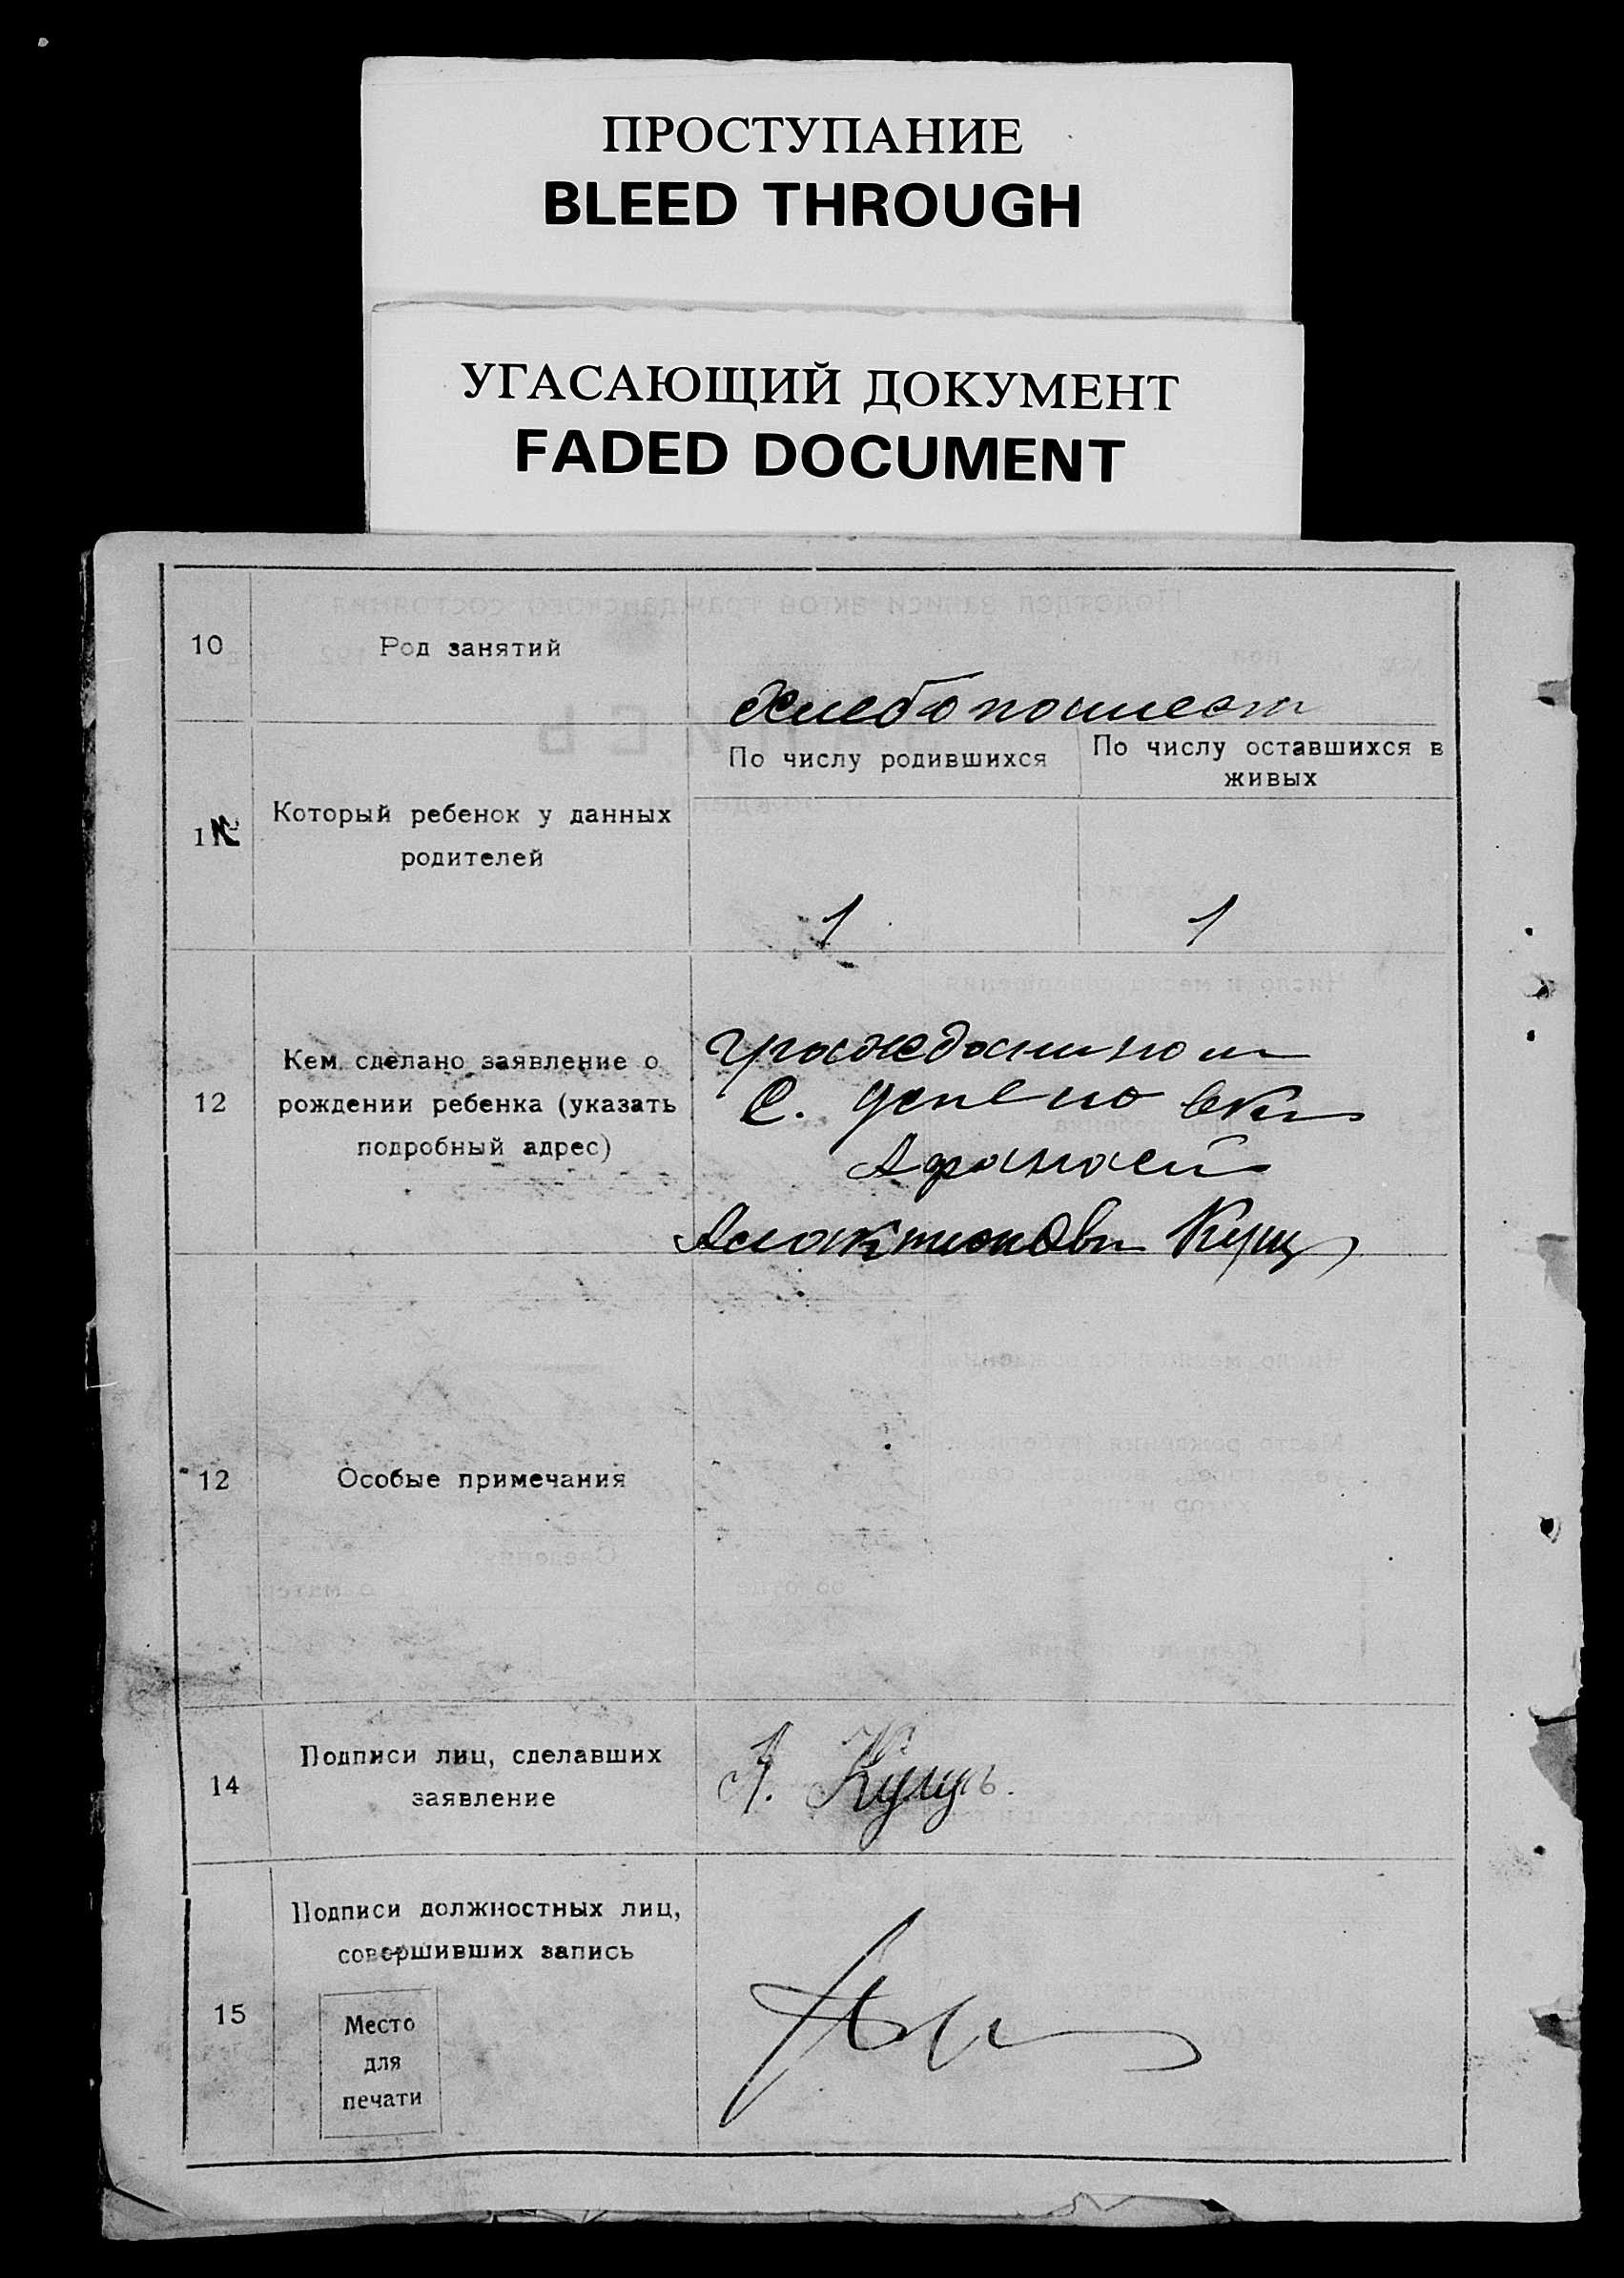 ПРОСТУПАНИЕ
BLEED THROUGH
УГАСАЮЩИЙ ДОКУМЕНТ
FADED DOCUMENT
10
Род занятий
Хлебопашест
11
Который ребенок у данных
родителей
По числу родившихся
По числу оставшихся в
живых
1
1
12
Кем сделано заявление о
рождении ребенка (указать
подробный адрес)
гражданином
с. Успеновки
Афанасей
Кущ
12
Особые примечания
14
Подписи лиц, сделавших
заявление
А. Кущъ.
15
Подписи должностных лиц,
совершивших запись
Место
для
печати